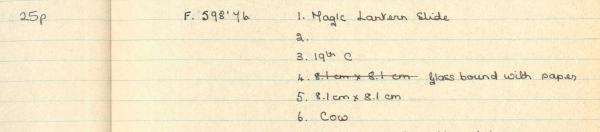 25p F. 598'76 1. Magic Lantern Slide
2.
3. 19th C
4. 8.1 cm x 8.1 cm glass bound with paper
5. 8.1 cm x 8.1 cm
6. Cow